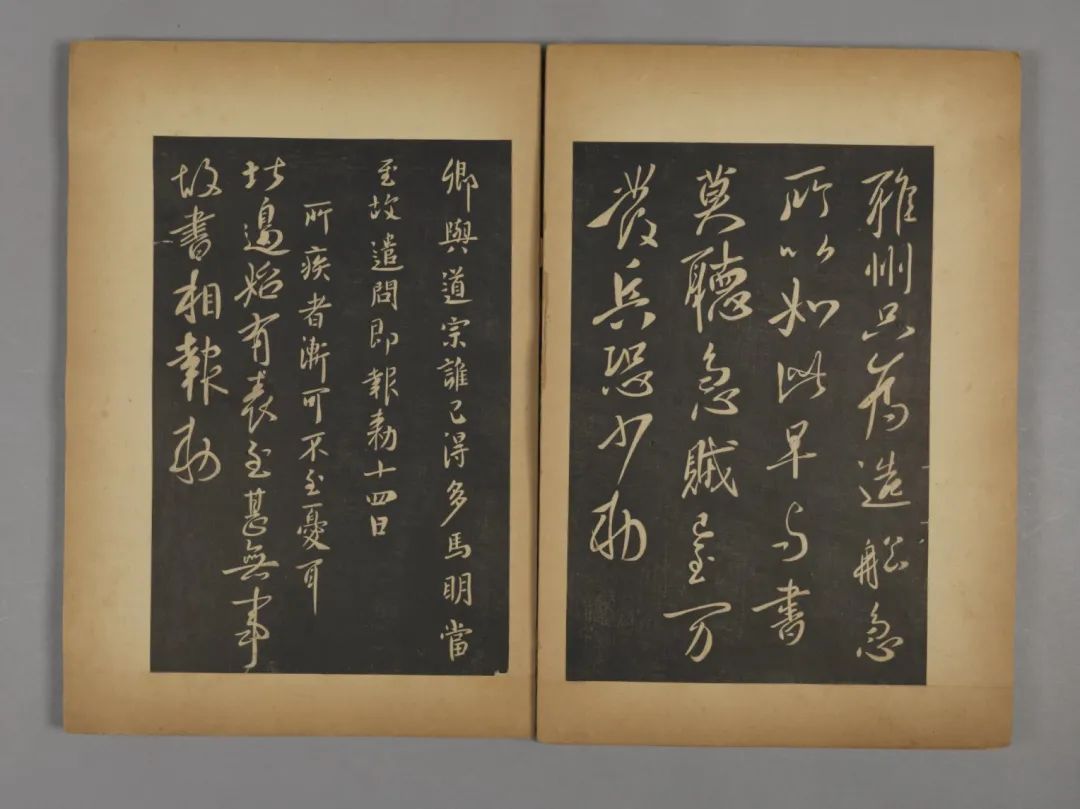 雅州只为造船急
所以如此早与書
莫聽急賊万
發兵恐少勅
卿與道宗誰已得多馬明當
至故遣問即報勅十四日
所疾者漸可不至憂耳
北邊始有表至甚無事
故書相報勅